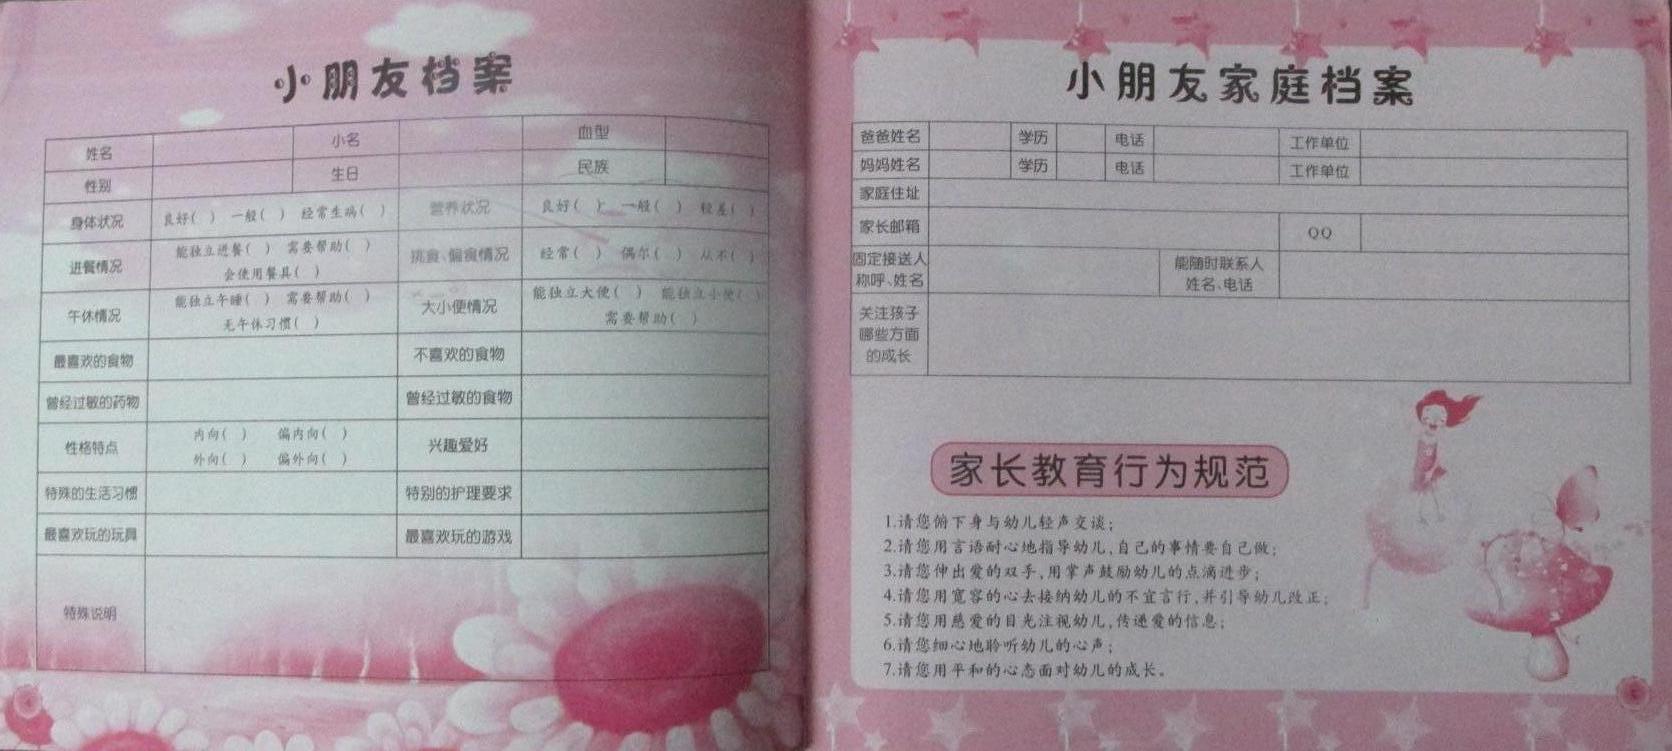 小朋友档案
姓名 小名 血型
性别 生日 民族
身体状况 良好( ) 一般( ) 经常生病( ) 营养状况 良好( ) 一般( ) 较差( )
进餐情况 能独立进餐( ) 需要帮助( ) 会使用餐具( ) 挑食、偏食情况 经常( ) 偶尔( ) 从不( )
午休情况 能独立午睡( ) 需要帮助( ) 无午休习惯( ) 大小便情况 能独立大便( ) 能独立小便( ) 需要帮助( )
最喜欢的食物 不喜欢的食物
曾经过敏的药物 曾经过敏的食物
性格特点 内向( ) 偏内向( ) 外向( ) 偏外向( ) 兴趣爱好
特殊的生活习惯 特别的护理要求
最喜欢玩的玩具 最喜欢玩的游戏
特殊说明
小朋友家庭档案
爸爸姓名 学历 电话 工作单位
妈妈姓名 学历 电话 工作单位
家庭住址
家长邮箱 QQ
固定接送人
称呼、姓名
能随时联系人
姓名、电话
关注孩子
哪些方面
的成长
家长教育行为规范
1.请您俯下身与幼儿轻声交谈;
2.请您用言语耐心地指导幼儿,自己的事情要自己做;
3.请您伸出爱的双手,用掌声鼓励幼儿的点滴进步;
4.请您用宽容的心去接纳幼儿的不宜言行,并引导幼儿改正;
5.请您用慈爱的目光注视幼儿,传递爱的信息;
6.请您细心地聆听幼儿的心声;
7.请您用平和的心态面对幼儿的成长。